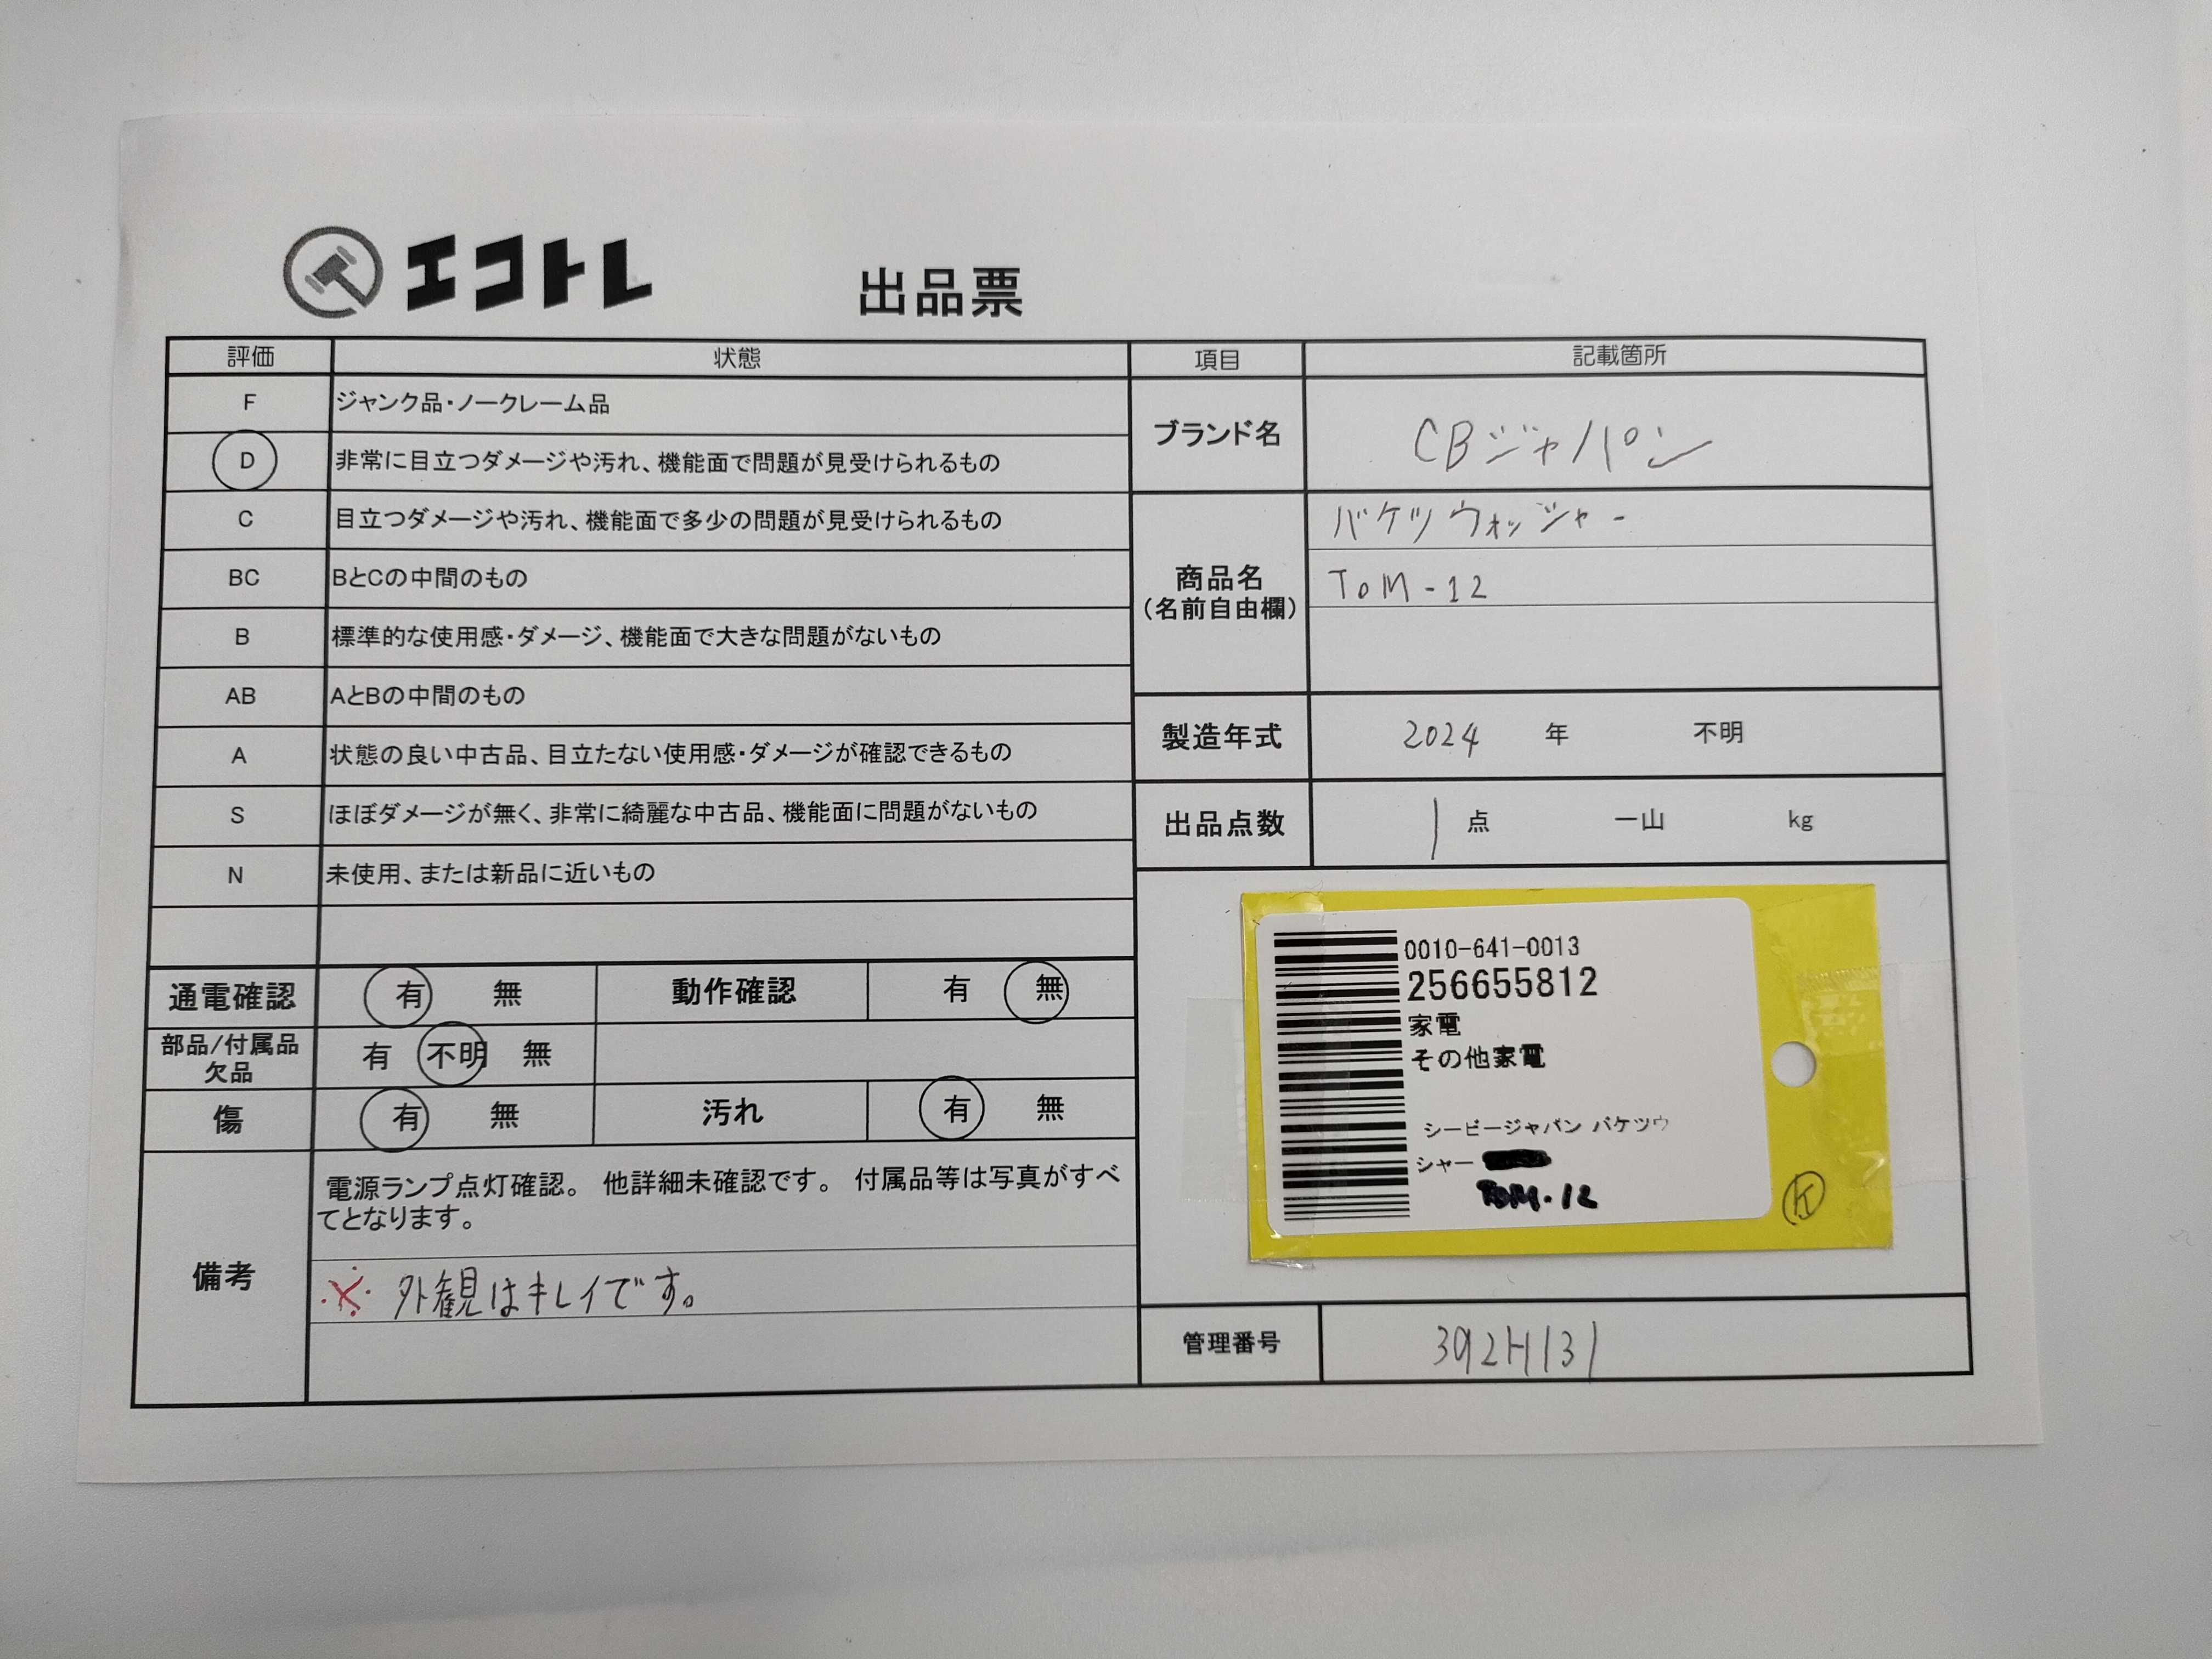 エコトレ
出品票
評価 状態
F ジャンク品・ノークレーム品
D 非常に目立つダメージや汚れ、機能面で問題が見受けられるもの
C 目立つダメージや汚れ、機能面で多少の問題が見受けられるもの
BC BとCの中間のもの
B 標準的な使用感・ダメージ、機能面で大きな問題がないもの
AB AとBの中間のもの
A 状態の良い中古品、目立たない使用感・ダメージが確認できるもの
S ほぼダメージが無く、非常に綺麗な中古品、機能面に問題がないもの
N 未使用、または新品に近いもの
通電確認 有 無 動作確認 有 無
部品/付属品
欠品
有 不明 無
傷 有 無 汚れ 有 無
備考
電源ランプ点灯確認。 他詳細未確認です。 付属品等は写真がすべ
てとなります。
※ 外観はキレイです。
項目 記載箇所
ブランド名 CBジャパン
商品名
(名前自由欄)
バケツウォッシャー
TOM-12
製造年式 2024 年 不明
出品点数 1 点 一山 kg
0010-641-0013
256655812
家電
その他家電
シービージャパン バケツウ
シャー
TOM-12
K
管理番号 392H131